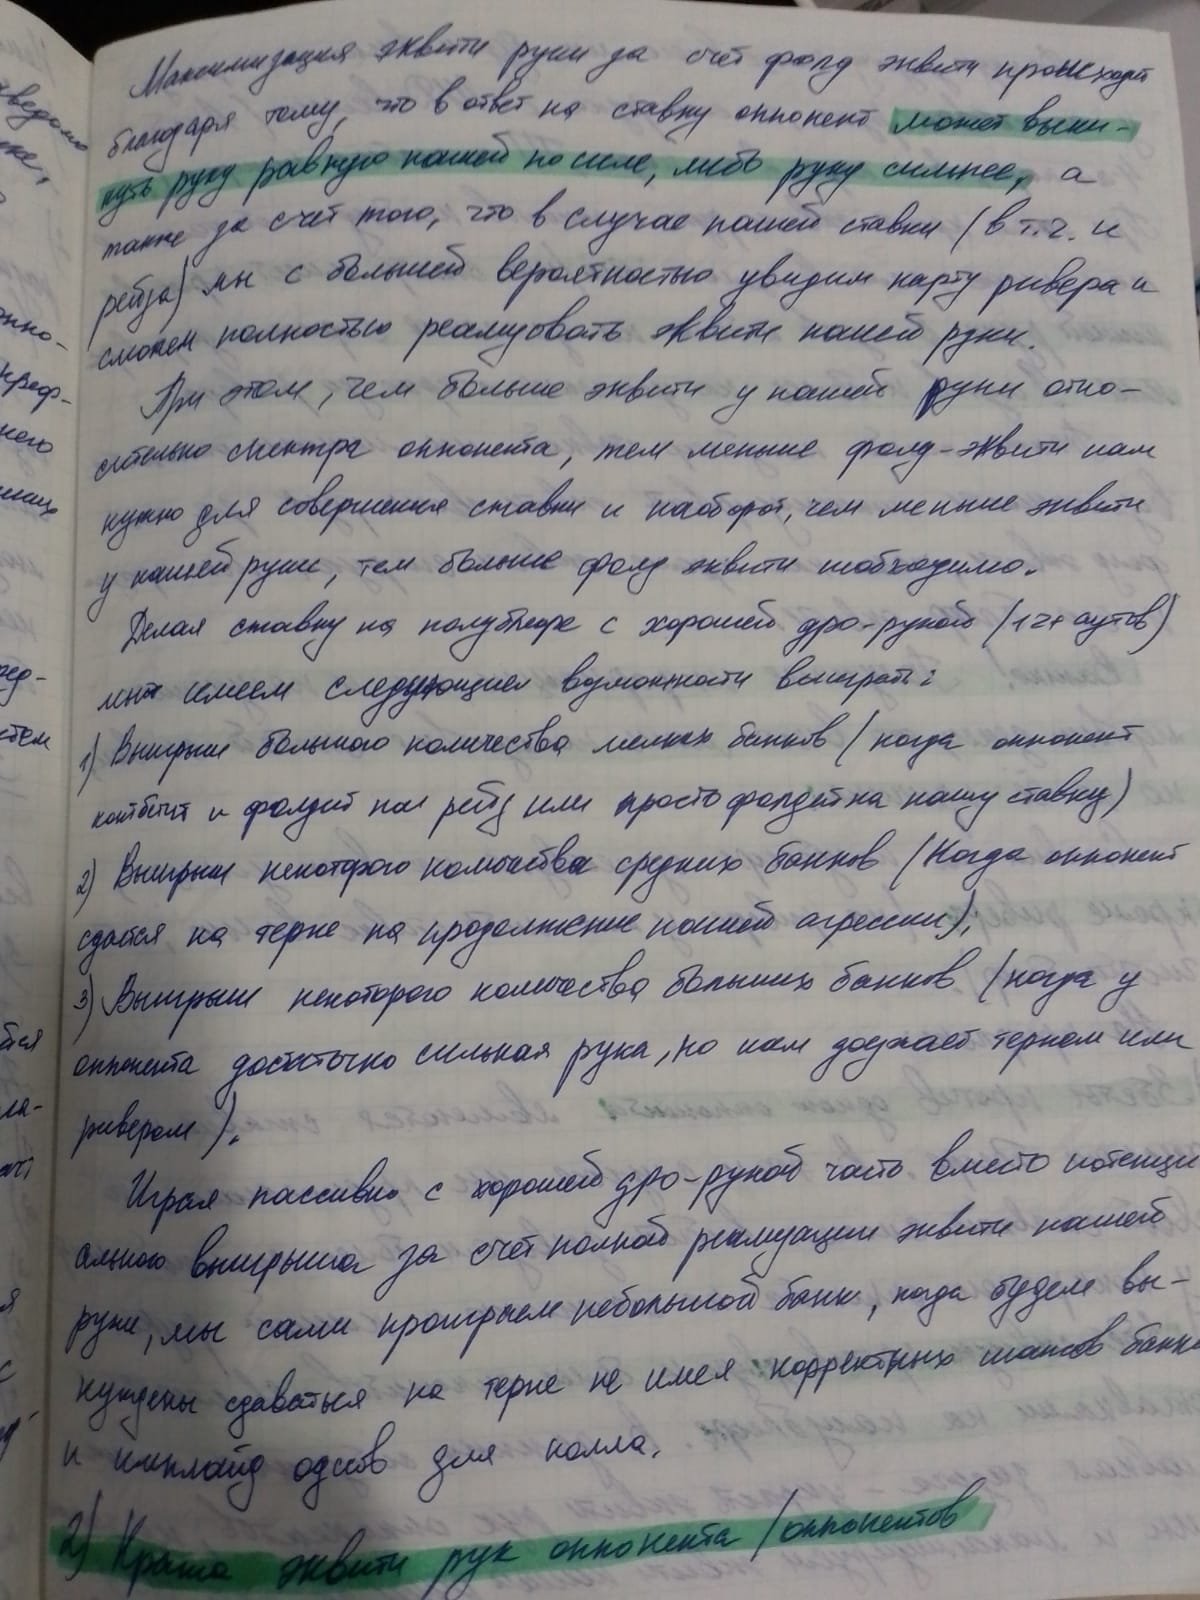 Максимизация эквити руки за счёт фолд эквити происходит
благодаря тому, что в ответ на ставку оппонент может выки-
нуть руку равную нашей по силе, либо руку сильнее, а
также за счёт того, что в случае нашей ставки (в т.ч. и
рейза) мы с большей вероятностью увидим карту ривера и
сможем полностью реализовать эквити нашей руки.
При этом, чем больше эквити у нашей руки отно-
сительно спектра оппонента, тем меньше фолд-эквити нам
нужно для совершения ставки и наоборот, чем меньше эквити
у нашей руки, тем больше фолд эквити необходимо.
Делая ставку на полублефе с хорошей дро-рукой (12+ аутов)
мы имеем следующие возможности выиграть:
1) Выигрыш большого количества мелких банков (когда оппонент
контбетит и фолдит на рейз или просто фолдит на нашу ставку)
2) Выигрыш некоторого количества средних банков (Когда оппонент
сдаётся на терне на продолжение нашей агрессии);
3) Выигрыш некоторого количества больших банков (когда у
оппонента достаточно сильная рука, но нам доезжает терном или
ривером).
Играя пассивно с хорошей дро-рукой часто вместо потенци
ального выигрыша за счёт полной реализации эквити нашей
руки, мы сами проиграем небольшой банк, когда будем вы-
нуждены сдаваться на терне не имея корректных шансов банка
и имплайд одсов для колла.
2) Кража эквити рук оппонента/оппонентов